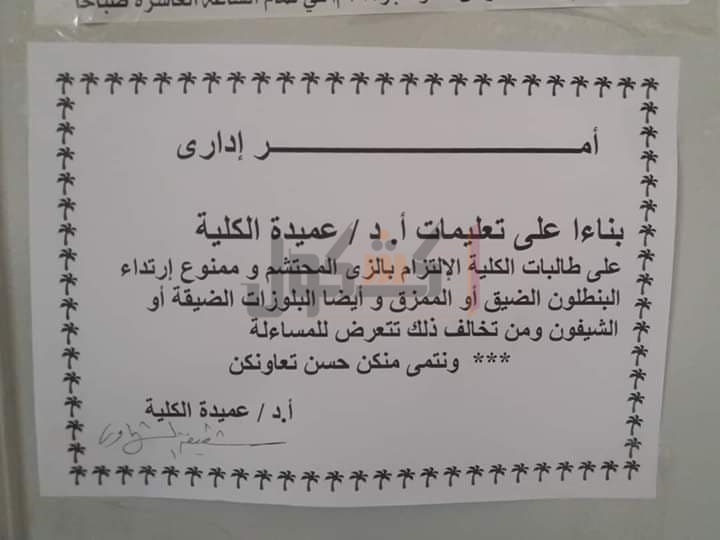 في تمام الساعة العاشرة صباحا
أمـــــــــــــــــــــــــــــــر إدارى
بناءا على تعليمات أ.د / عميدة الكلية
على طالبات الكلية الإلتزام بالزى المحتشم و ممنوع إرتداء
البنطلون الضيق أو الممزق و أيضا البلوزات الضيقة أو
الشيفون ومن تخالف ذلك تتعرض للمساءلة
*** ونتمى منكن حسن تعاونكن
أ.د / عميدة الكلية
كشكول